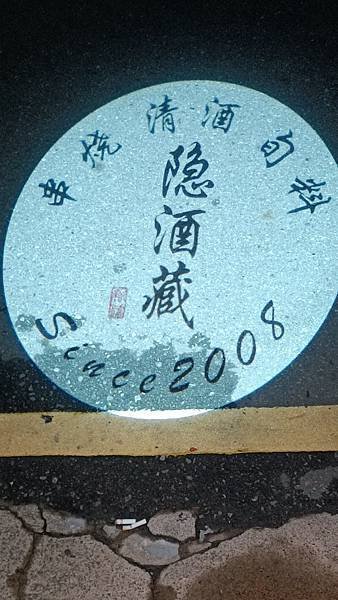 串烧 清酒 旬料
隐
酒
藏
Since2008